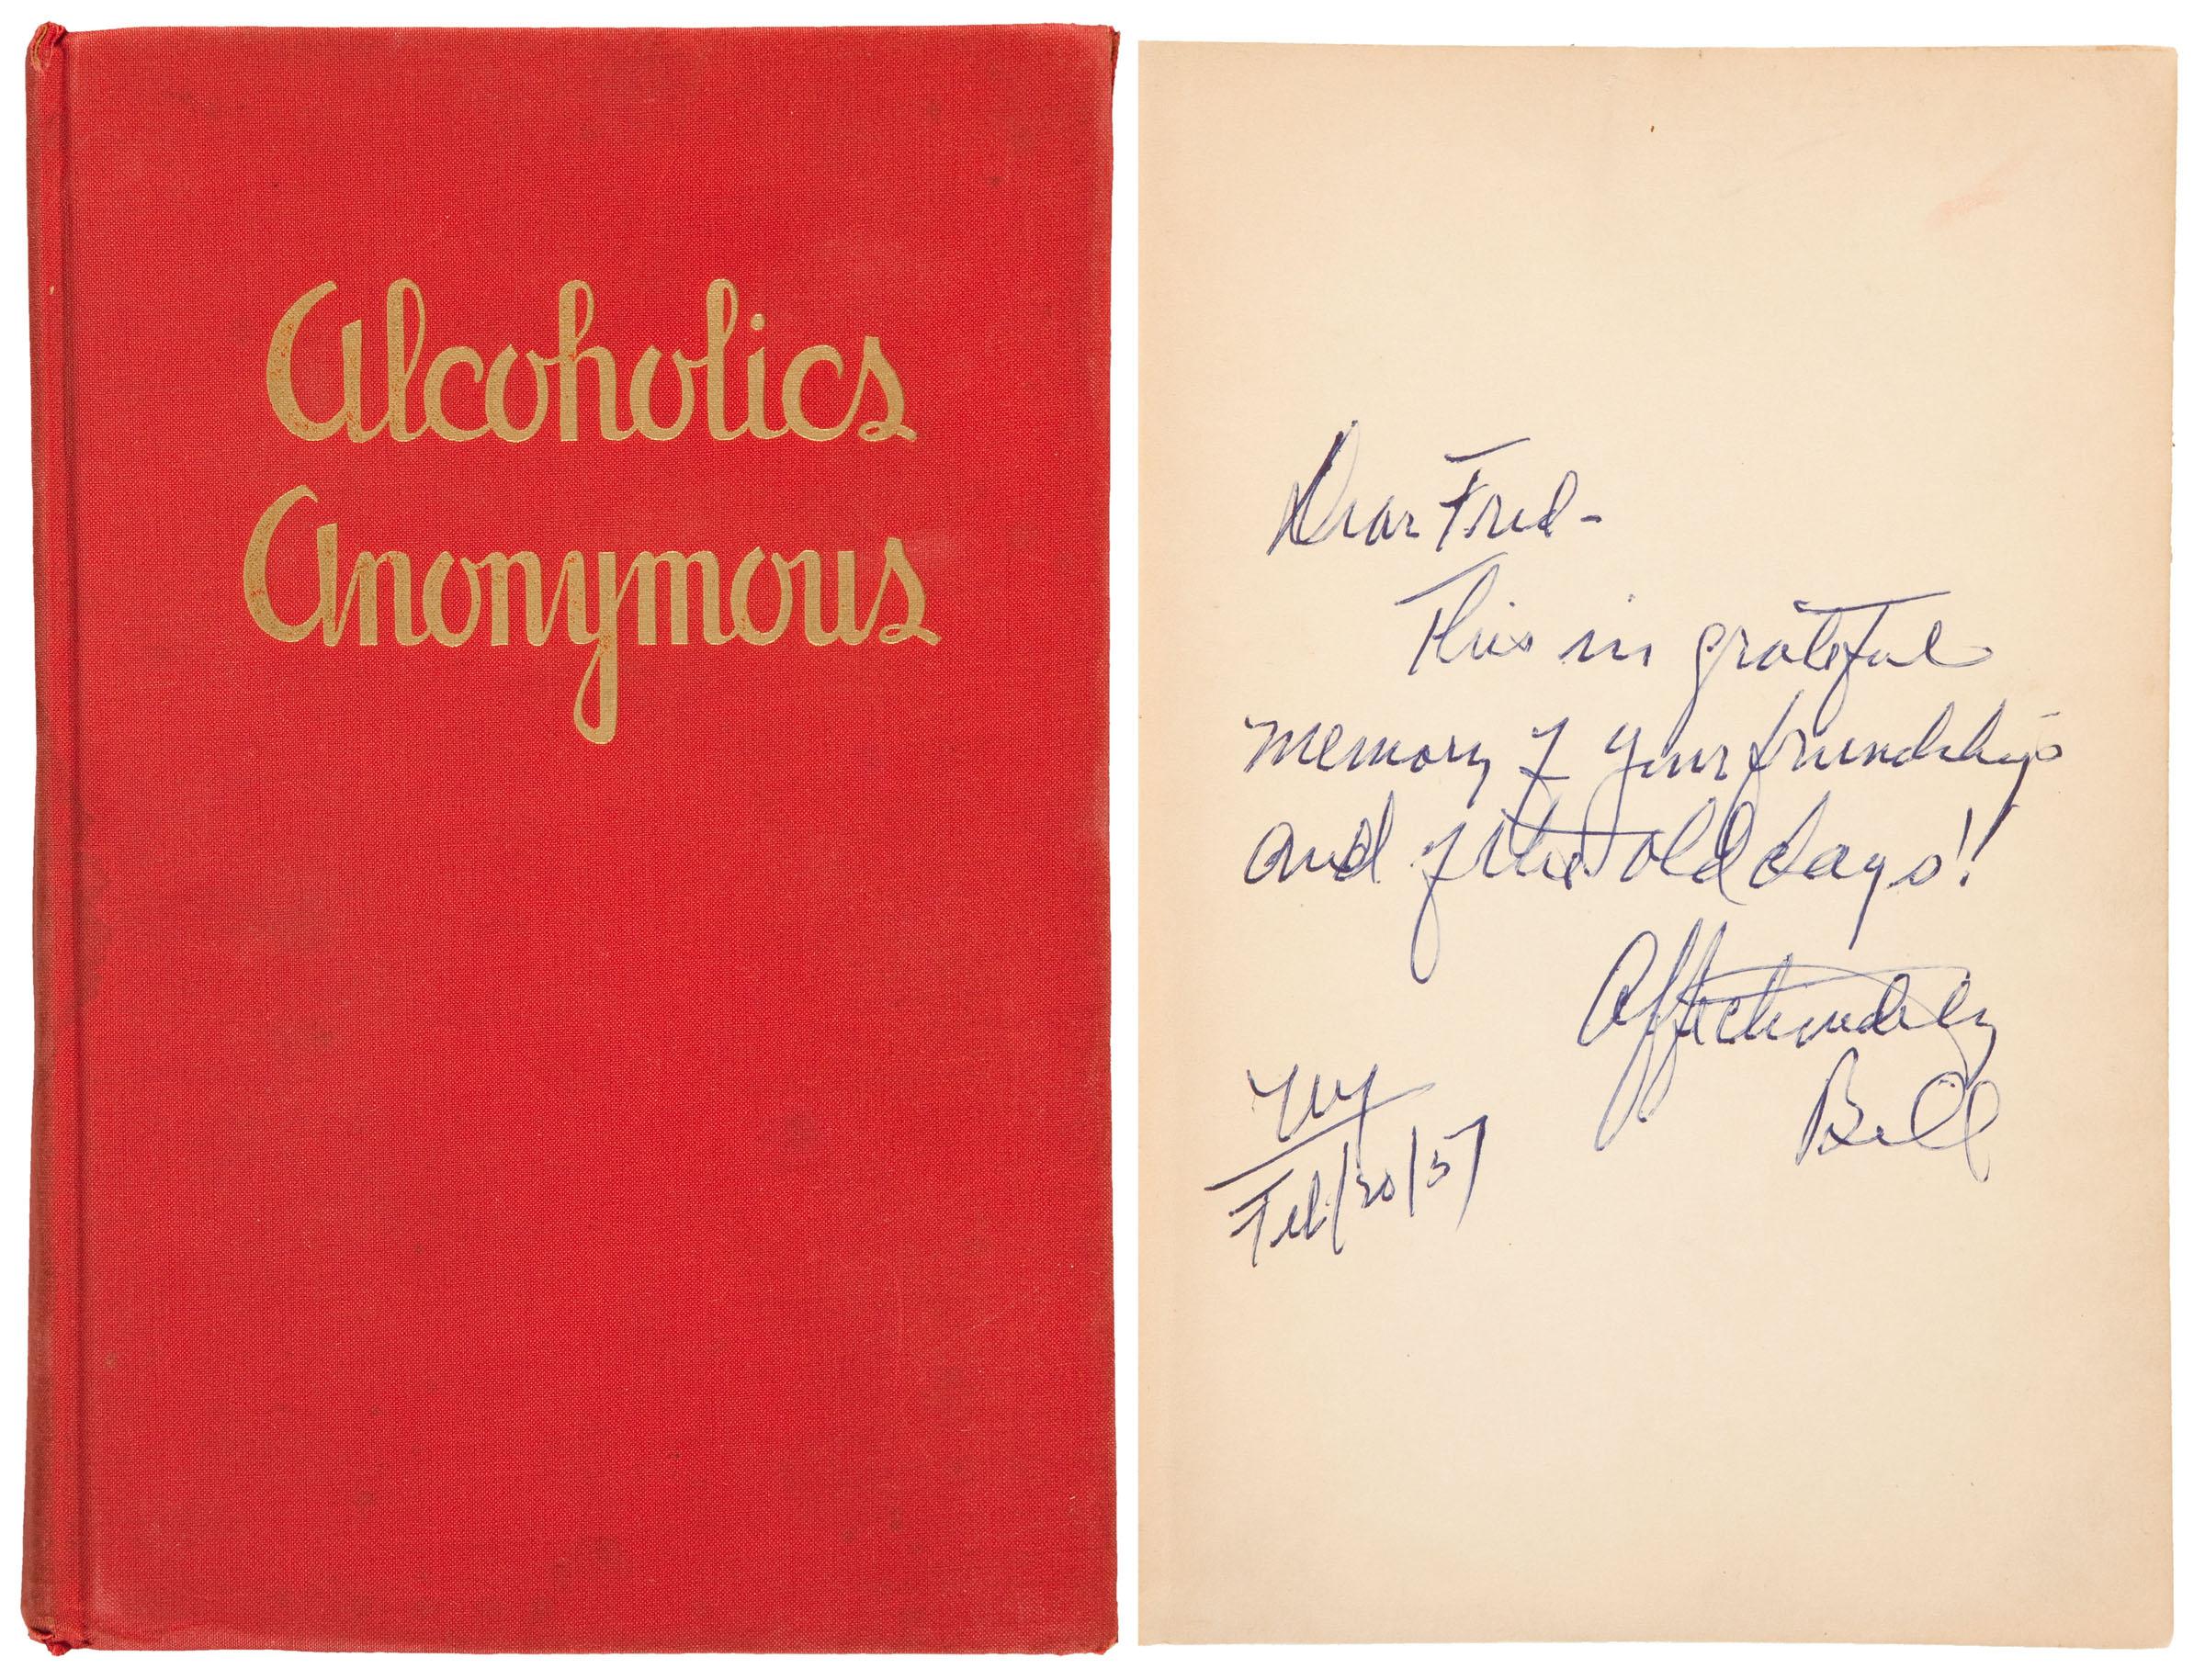 Alcoholics
Anonymous
Dear Fred-
This in grateful
memory of your friendship
and of the old days!!
Affectionately
Bill
NY
Feb/20/57